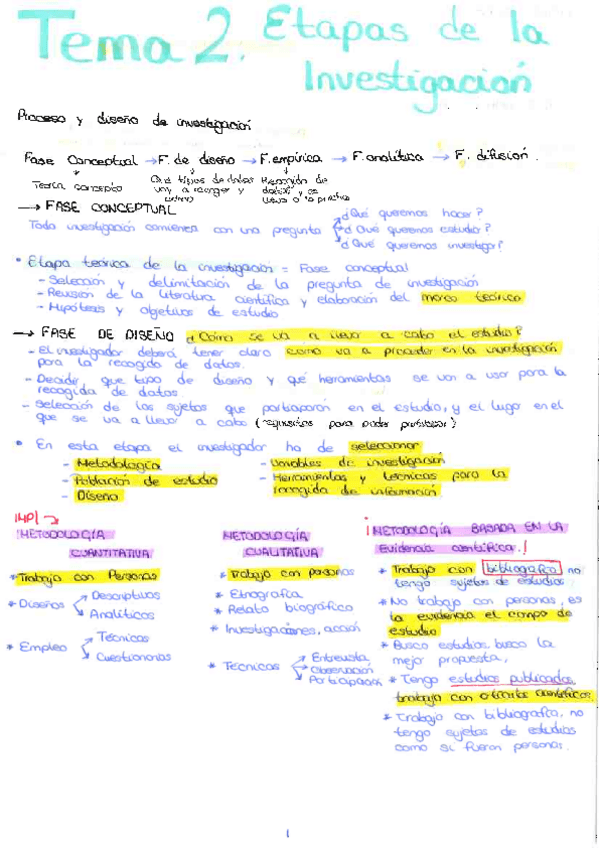 Tema 2. Etapas de la
Investigación
Proceso y diseño de investigación
Fase Conceptual → F. de diseño → F. empírica → F. analítica → F. difusión.
Teoría concepto
Que tipos de datos
voy a recoger y
Recogida de
datos y se
lleva a la práctica
→ FASE CONCEPTUAL
Toda investigación comienza con una pregunta
¿Qué queremos hacer?
¿Qué queremos estudiar?
¿Qué queremos investigar?
• Etapa teórica de la investigación = Fase conceptual
- Selección y delimitación de la pregunta de investigación
- Revisión de la literatura científica y elaboración del marco teórico
- Hipótesis y objetivos de estudio
→ FASE DE DISEÑO ¿Cómo se va a llevar a cabo el estudio?
- El investigador deberá tener claro como va a proceder en la investigación
para la recogida de datos.
- Decidir que tipo de diseño y qué herramientas se van a usar para la
recogida de datos.
- Selección de los sujetos que participarán en el estudio, y el lugar en el
que se va a llevar a cabo (requisitos para poder participar)
• En esta etapa el investigador ha de seleccionar
- Metodología
- Población de estudio
- Diseño
- Variables de investigación
- Herramientas y técnicas para la
recogida de información
IMP! →
METODOLOGÍA
CUANTITATIVA
* Trabajo con Personas
* Diseños
Descriptivos
Analíticos
* Empleo
Técnicas
Cuestionarios
METODOLOGÍA
CUALITATIVA
* Trabajo con personas
* Etnografía
* Relato biográfico
* Investigaciones, acción
* Técnicas
Entrevista
Observación
Participación
¡METODOLOGÍA BASADA EN LA
Evidencia científica.!
* Trabajo con bibliografía no
tengo sujetos de estudios.
* No trabajo con personas, es
la evidencia el campo de
estudio
* Busco estudios, busco la
mejor propuesta,
* Tengo estudios publicados,
trabajo con científicos.
* Trabajo con bibliografía, no
tengo sujetos de estudios
como si fueran personas.
1